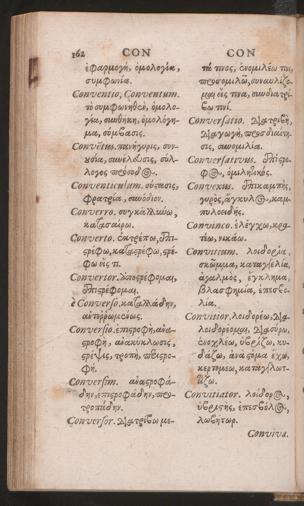 162 CON CON
ἐφαρμογή, ὁμολογία,
συμφωνία.
Conventio, Conventum.
τὸ συμφωνηθὲν, ὁμολο-
γία, συνθήκη, ὁμολόγη-
μα, σύμβασις.
Conventus. πανήγυρις, συν-
ουσία, συνέλευσις, σύλ-
λογος
Conventiculum. σύστασις,
φρατρία, συνόδιον.
Converro. συγκαλλύνω,
κατασαίρω.
Converto. ἐκτρέπω, ἐπι-
στρέφω, καταστρέφω, στρέ-
φω εἰς τι.
Convertor. ὑποστρέφομαι,
ἐπιστρέφομαι.
è Converso, καταλλάδην,
Conversio. ἐπιστροφή, ἀνα-
στροφή, ἀνακύκλωσις,
στρέψις, τροπή, περιστρο-
φή.
Conversim. ἀναστροφά-
δην, ἐπιστροφάδην, προ-
τροπάδην.
Conversor. διατρίβω με-
τά τινος, ἐνομιλέω τινι,
προσομιλῶ, συναυλίζο-
μαι εἰς τινα, συνδιατρί-
βω τινί.
Conversatio. διατριβή,
διαγωγή, προσδιαίτη-
σις, συνομιλία.
Conversativus. ἐπίστρο-
φος, ὁμιλητικός.
Convexus. ἐπικαμπής,
γυρός, ἀγκύλος, καμ-
πυλοειδής.
Convinco. ἐλέγχω, κρα-
τέω, νικάω.
Convitium. λοιδορία,
σκῶμμα, καταγελία,
ἔγκλημα,
βλασφημία, ἐπεσβο-
λία.
Convitior. λοιδορέω, δια-
λοιδορέομαι, διασύρω,
ἐνοχλέω, ὑβρίζω, κυ-
δάζω, ἀνὰ στόμα ἔχω,
κερτομέω, καταγλωτ-
τίζω.
Convitiator. λοίδορος,
ὑβριστής, ἐπεσβόλος,
λωβητωρ.
Conviva.